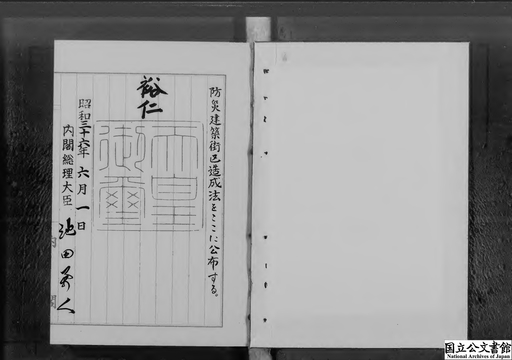 防災建築街区造成法をここに公布する。
裕仁
天皇
御璽
昭和三十六年六月一日
内閣総理大臣 池田勇人
内
閣
国立公文書館
National Archives of Japan